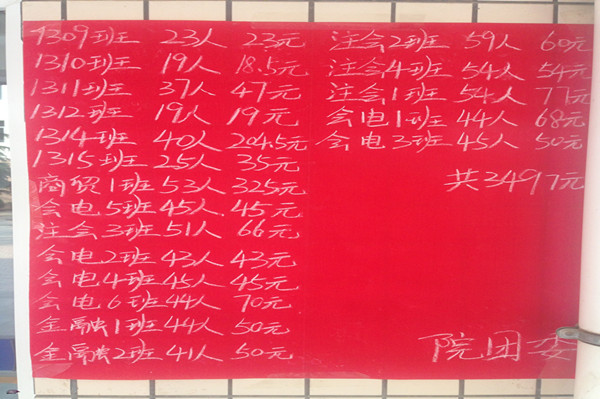 1309班 23人 23元
1310班 19人 18.5元
1311班 37人 47元
1312班 19人 19元
1314班 40人 204.5元
1315班 25人 35元
商贸1班 53人 325元
会电5班 45人 45元
注会3班 51人 66元
会电2班 43人 43元
会电4班 45人 45元
会电6班 44人 70元
金融1班 44人 50元
金融2班 41人 50元
注会2班 59人 60元
注会4班 54人 54元
注会1班 54人 77元
会电1班 44人 68元
会电3班 45人 50元
共3497元
院团委